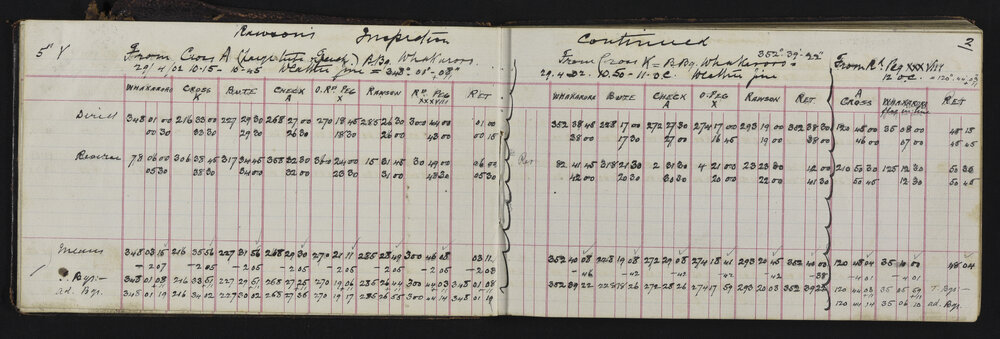 Rawson's Inspection Continued 2
5" Y From Cross A
29/4/02 10-15 - 10-45 Weather fine = 348° 01' 08"
WHAKARORO CROSS K BUTE CHECK A O.Rd PEG X RAWSON Rd PEG XXXVIII RET
Direct 348 01 00 216 33 00 227 29 30 268 27 00 270 18 45 285 26 30 300 44 00 00 15
00 30 33 30 29 30 26 30 18 30 26 00 43 00 00 15
Reverse 78 06 00 306 38 45 317 34 45 358 32 30 360 24 00 15 31 45 30 49 00 06 00
05 30 38 30 34 00 32 00 23 30 31 00 48 30 05 30
Means 348 03 15 216 35 56 227 31 56 268 29 30 270 21 11 285 28 49 300 46 08 03 11
- 2 07 - 2 05 - 2 05 - 2 05 - 2 05 - 2 05 - 2 05 - 2 03
Bgs:- 348 01 08 216 33 51 227 29 51 268 27 25 270 19 06 285 26 44 300 44 03 348 01 08
ad. Bgs. 348 01 19 216 34 02 227 30 02 268 27 36 270 19 17 285 26 55 300 44 14 348 01 19
352° 39' 22"
From Cross K = B.Bg. Whakaroro =
29.4.02. 10.50 - 11.0 c. Weather fine
WHAKARORO BUTE CHECK A O.PEG X RAWSON RET
352 38 45 228 17 00 272 27 30 274 17 00 293 19 00 352 38 30
38 00 17 30 27 00 16 45 19 00 38 00
Rev 82 41 45 318 21 30 2 31 30 4 21 00 23 23 30 42 00
42 00 20 30 30 30 20 00 22 00 41 30
352 40 08 228 19 08 272 29 08 274 18 41 293 20 45 352 40 00
- 46 - 42 - 42 - 42 - 42 - 38
352 39 22 228 18 26 272 28 26 274 17 59 293 20 03 352 39 22
From Rd Peg XXXVIII
12 o.c. = 120° 44' 03"
A CROSS WHAKARORO flag in line RET
120 45 00 35 08 00 45 15
46 00 07 00 45 45
210 50 30 125 12 30 50 30
50 45 12 30 50 45
120 48 04 35 10 00 48 04
- 4 01 - 4 01
120 44 03 35 05 59 T Bgs:-
120 44 14 35 06 10 ad. Bgs.